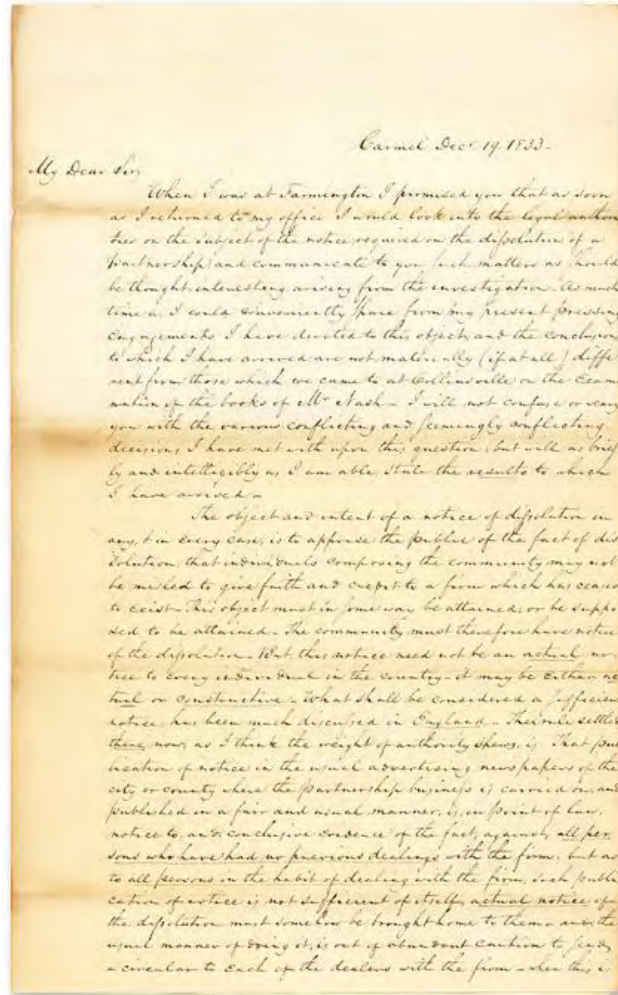 Carmel Decr. 19. 1833-
My Dear Sir,
When I was at Farmington I promised you that as soon
as I returned to my office I would look into the legal authori
ties on the subject of the notice required on the dissolution of a
partnership and communicate to you such matters as should
be thought interesting arising from the investigation. As much
time as I could conveniently spare from my present pressing
engagements I have devoted to this object, and the conclusions
to which I have arrived are not materially (if at all) diffe
rent from those which we came to at Collinsville on the exami
nation of the books of Mr Nash - I will not confuse or weary
you with the various conflicting and seemingly conflicting
decisions I have met with upon this question, but will as brief
ly and intelligibly as I am able, state the results to which
I have arrived -
The object and intent of a notice of dissolution in
any, & in every case, is to apprise the public of the fact of dis
solution, that individuals composing the community may not
be misled to give faith and credit to a firm which has ceased
to exist - This object must in some way be attained, or be suppo
sed to be attained - The community must therefore have notice
of the dissolution - But this notice need not be an actual no
tice to every individual in the country - it may be either ac
tual or constructive - What shall be considered a sufficient
notice has been much discussed in England - The rule settled
there, now, as I think the weight of authority shews, is That pub
lication of notice in the usual advertising newspapers of the
city or county where the partnership business is carried on, and
published in a fair and usual manner, is, in point of law,
notice to, and conclusive evidence of the fact, against, all per
sons who have had no previous dealings with the firm; but as
to all persons in the habit of dealing with the firm, such publi
cation of notice is not sufficient of itself, actual notice of
the dissolution must somehow be brought home to them - and the
usual manner of doing it, is out of abundant caution to send
a circular to each of the dealers with the firm - when this is